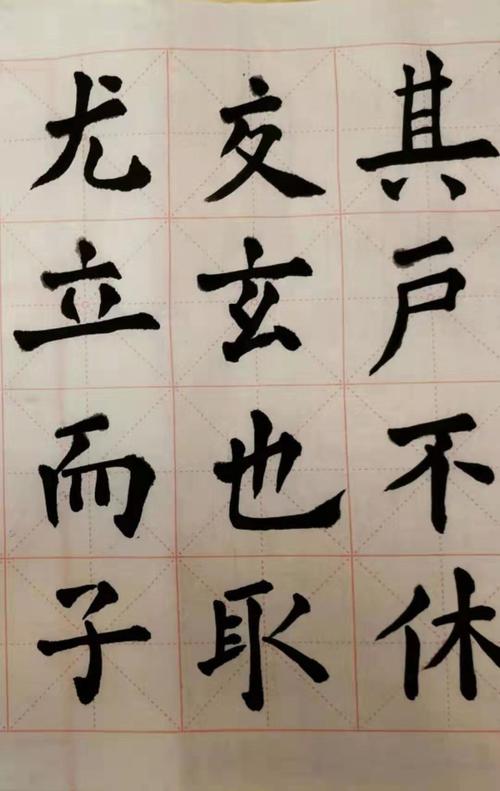 其户不休
交玄也取
尤立而子